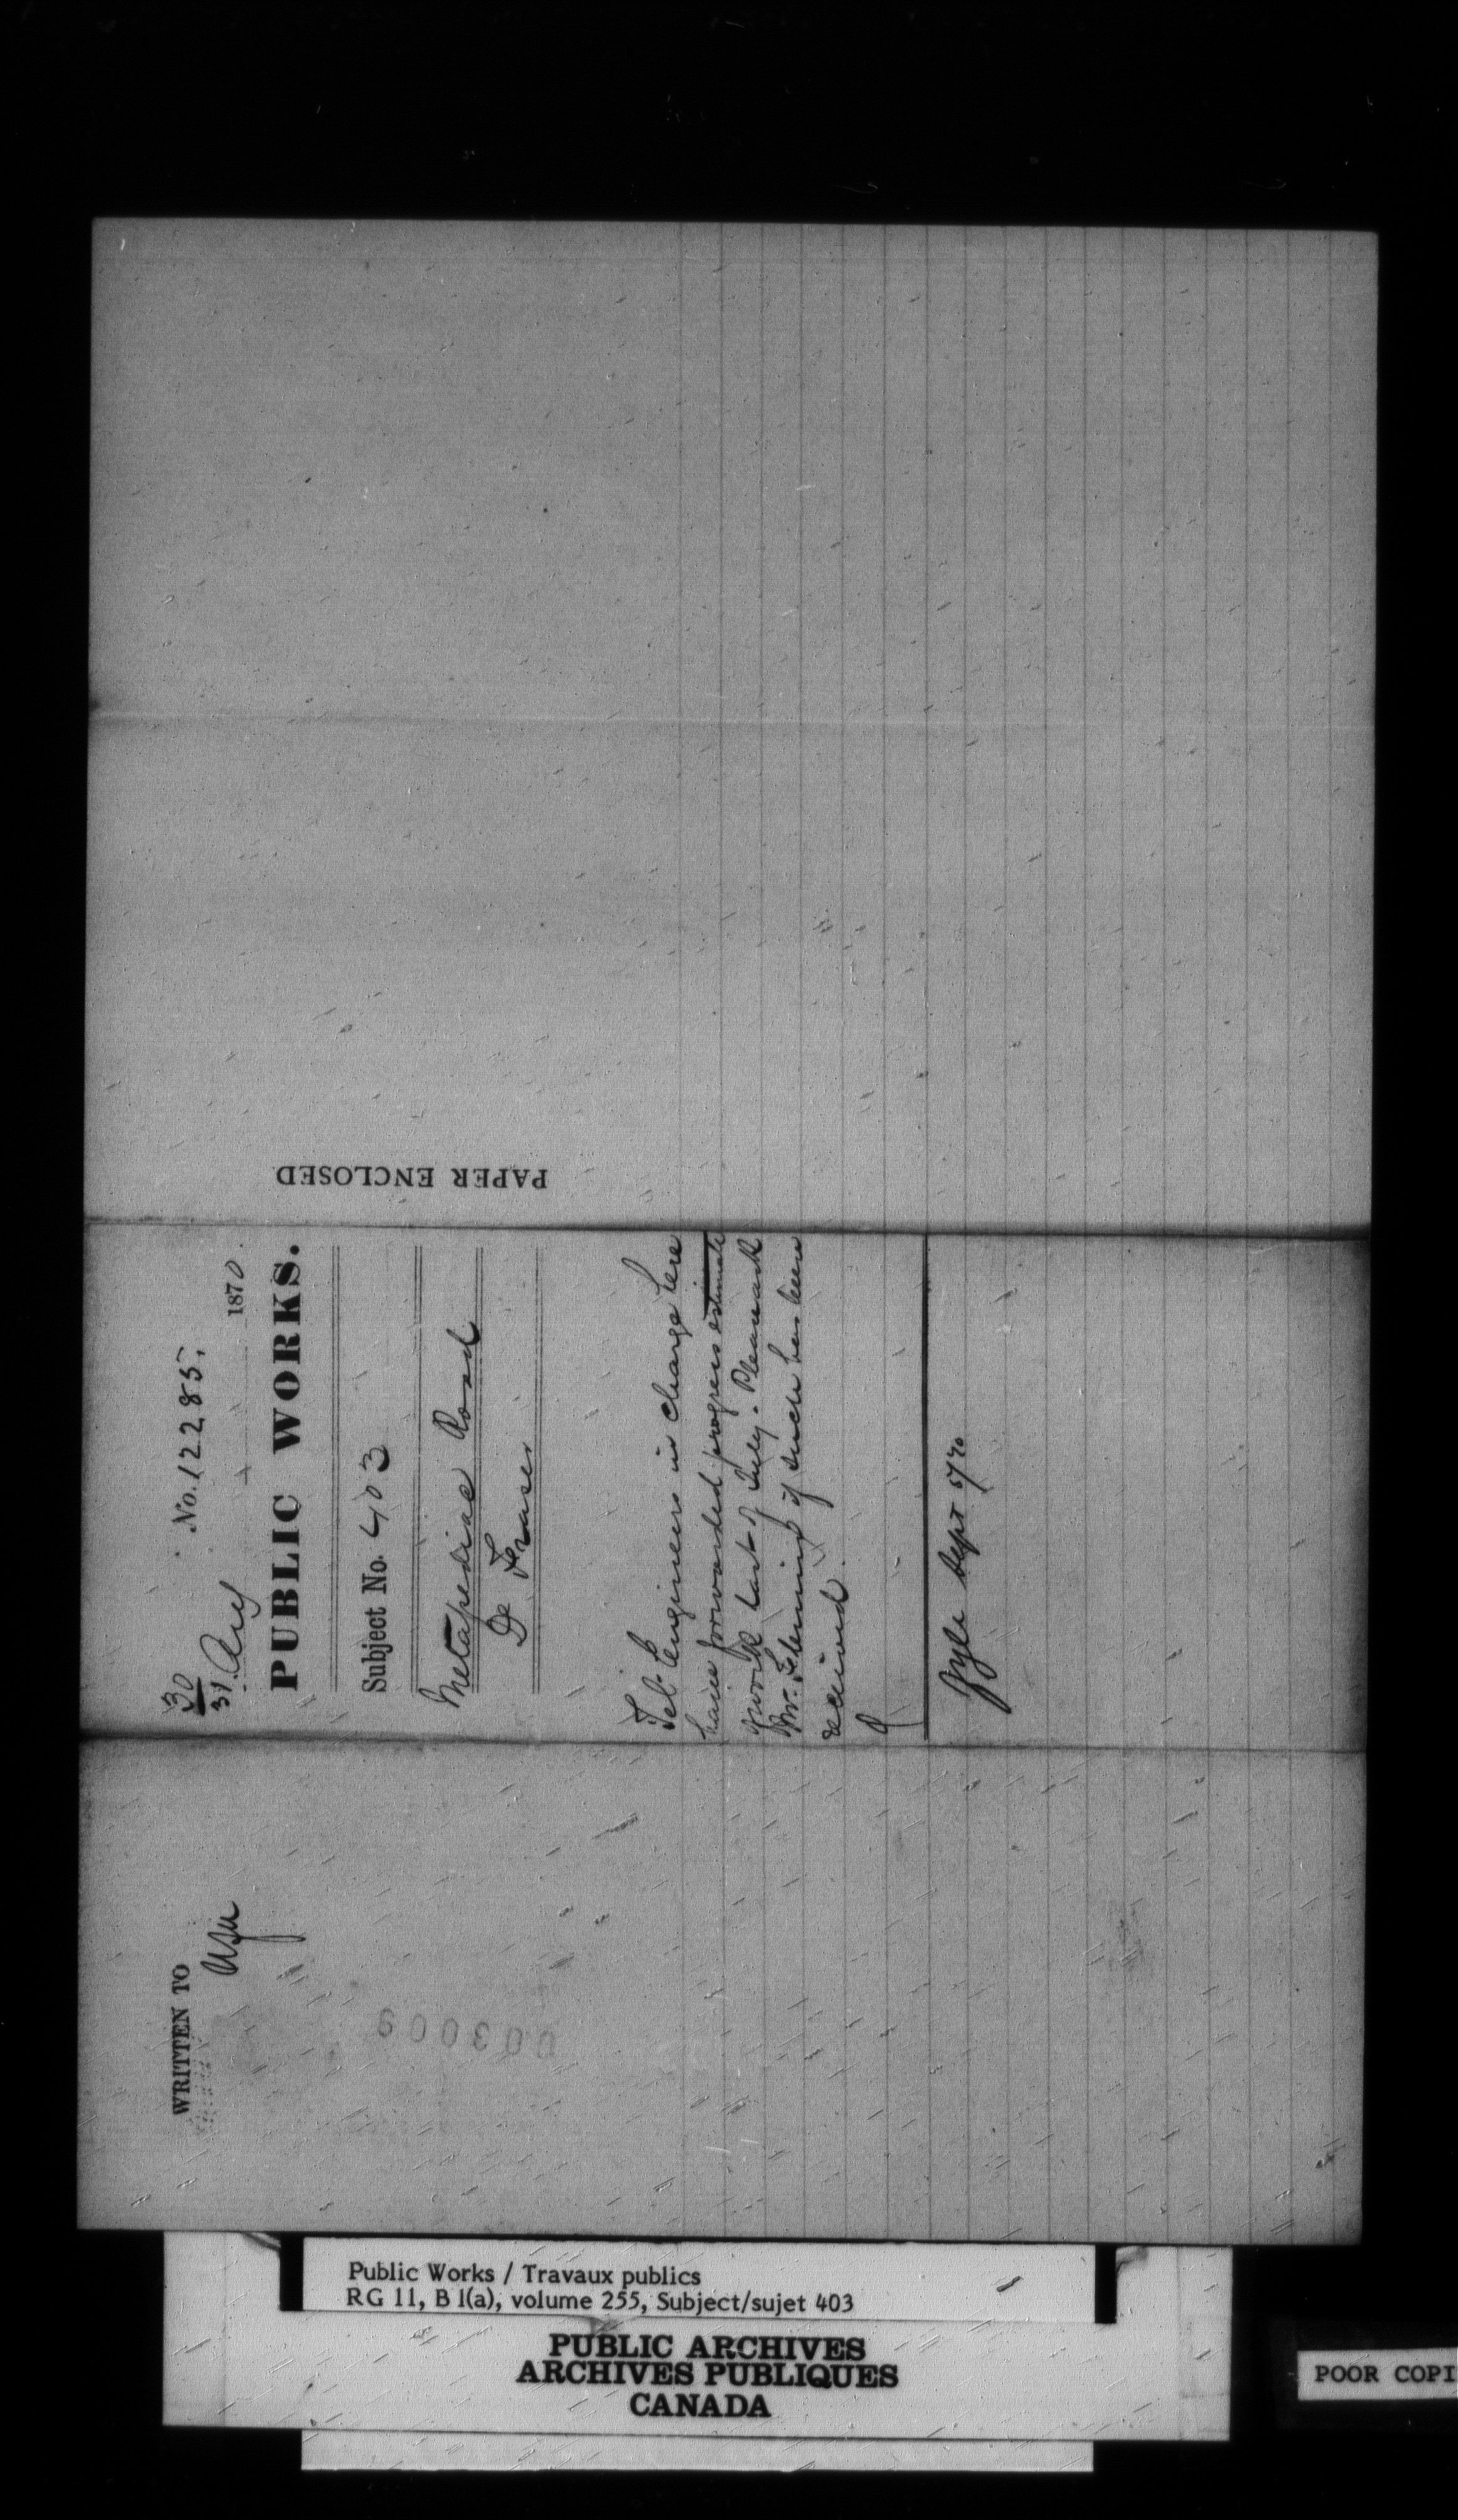 PAPER ENCLOSED
No. 12285.
30
31. Aug 1870.
PUBLIC WORKS.
Subject No. 403
Metapediac Road
D. Fraser
Tel. Engineers in charge here
have forwarded progress estimate
of work last of July. Please ask
Mr. Fleming if such has been
received.
Sept 5/70
WRITTEN TO
003009
Public Works / Travaux publics
RG 11, B 1(a), volume 255, Subject/sujet 403
PUBLIC ARCHIVES
ARCHIVES PUBLIQUES
CANADA
POOR COPI